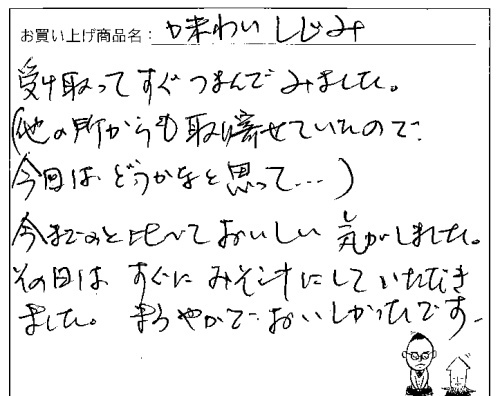 お買い上げ商品名： 味わいしじみ
受け取ってすぐつまんでみました。
(他の所からも取り寄せていたので、
今回は、どうかなと思って…)
今までのと比べておいしい気がしました。
その日は すぐに みそ汁にしていただき
ました。まろやかで、おいしかったです。